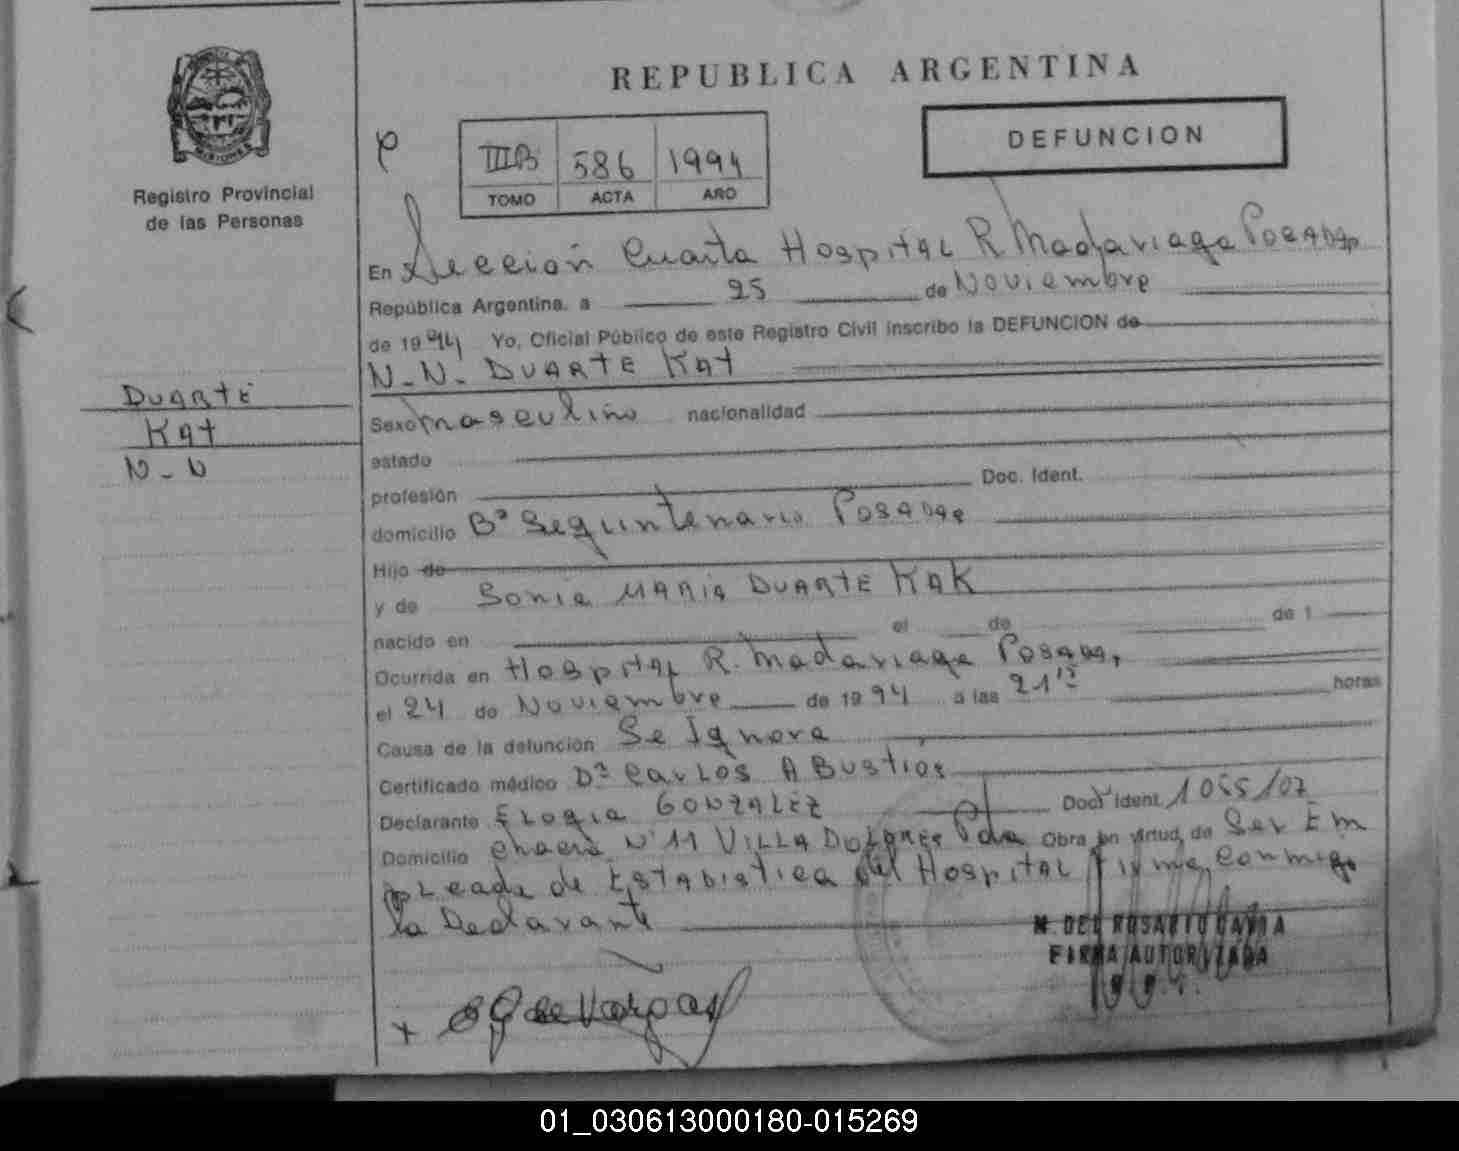 REPUBLICA ARGENTINA
MISIONES
Registro Provincial
de las Personas
IIIB 586 1994
TOMO ACTA AÑO
DEFUNCION
En Sección Cuarta Hospital R Madariaga Posadas
República Argentina. a 25 de Noviembre
de 1994 Yo, Oficial Público de este Registro Civil inscribo la DEFUNCION de
N-N- DUARTE KAT
Duarte
Kat
N-N
Sexo masculino nacionalidad
estado
profesión Doc. Ident.
domicilio Bº Sequintenario Posadas
Hijo de
y de Sonia MARIA DUARTE KAK
nacido en el de de 1
Ocurrida en Hospital R. Madariaga Posadas,
el 24 de Noviembre de 1994 a las 21 15 horas
Causa de la defunción Se Ignora
Certificado médico Dr Carlos A Bustios
Declarante Elogia GONZALEZ Doc. Ident. 1055/07
Domicilio chacra Nº 11 VILLA DOLORES Pdas Obra en virtud de Ser Em
pLeada de Estadistica del Hospital Firma conmigo
la Declarante
M. DEL ROSARIO
FIRMA AUTORIZADA
x EG de Vargas
01_030613000180-015269